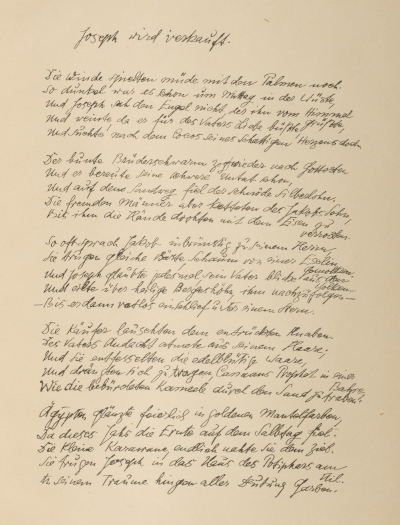 Joseph wird verkauft.
Die Winde spielten müde mit den Palmen noch.
So dunkel war es schon um Mittag in der Wüste,
Und Joseph sah den Engel nicht, der ihn vom Himmel
grüßte,
Und weinte da er für des Vaters Liebe büßte,
Und suchte nach dem Cocos seines schattigen Herzens doch.
Der bunte Brüderschwarm zog wieder nach Gottosten
Und er bereute seine schwere Untat schon,
Und auf den Sandweg fiel der schnöde Silberlohn.
Die fremden Männer aber ketteten des Jakobs Sohn,
Bis ihm die Häute drohten mit dem Eisen zu
verrosten.
So oft sprach Jakob inbrünstig zu seinem Herrn,
Sie trugen gleiche Bärte Schaum von einer Eselin
gemolken.
Und Joseph glaubte jedesmal sein Vater blicke aus den
Wolken
Und eilte über heilige Bergeshöhn, ihm nachzufolgen –
– Bis er dann ratlos einschlief unter einem Stern.
Die Käufer lauschten dem entrückten Knaben.
Des Vaters Andacht atmete aus seinem Haare;
Und sie entfesselten die edelblütige Ware,
Und drängten sich zu tragen Canaans Prophet in einer
Bahre,
Wie die bebürdeten Kameele durch den Sand zu traben.
Ägypten glänzte feierlich in goldenen Mantelfarben,
Da dieses Jahr die Ernte auf den Salbtag fiel.
Die kleine Karawane endlich nahte sie dem Ziel.
Sie trugen Joseph in das Haus des Potiphars am
Nil.
In seinem Traume hingen aller Deutung Garben.